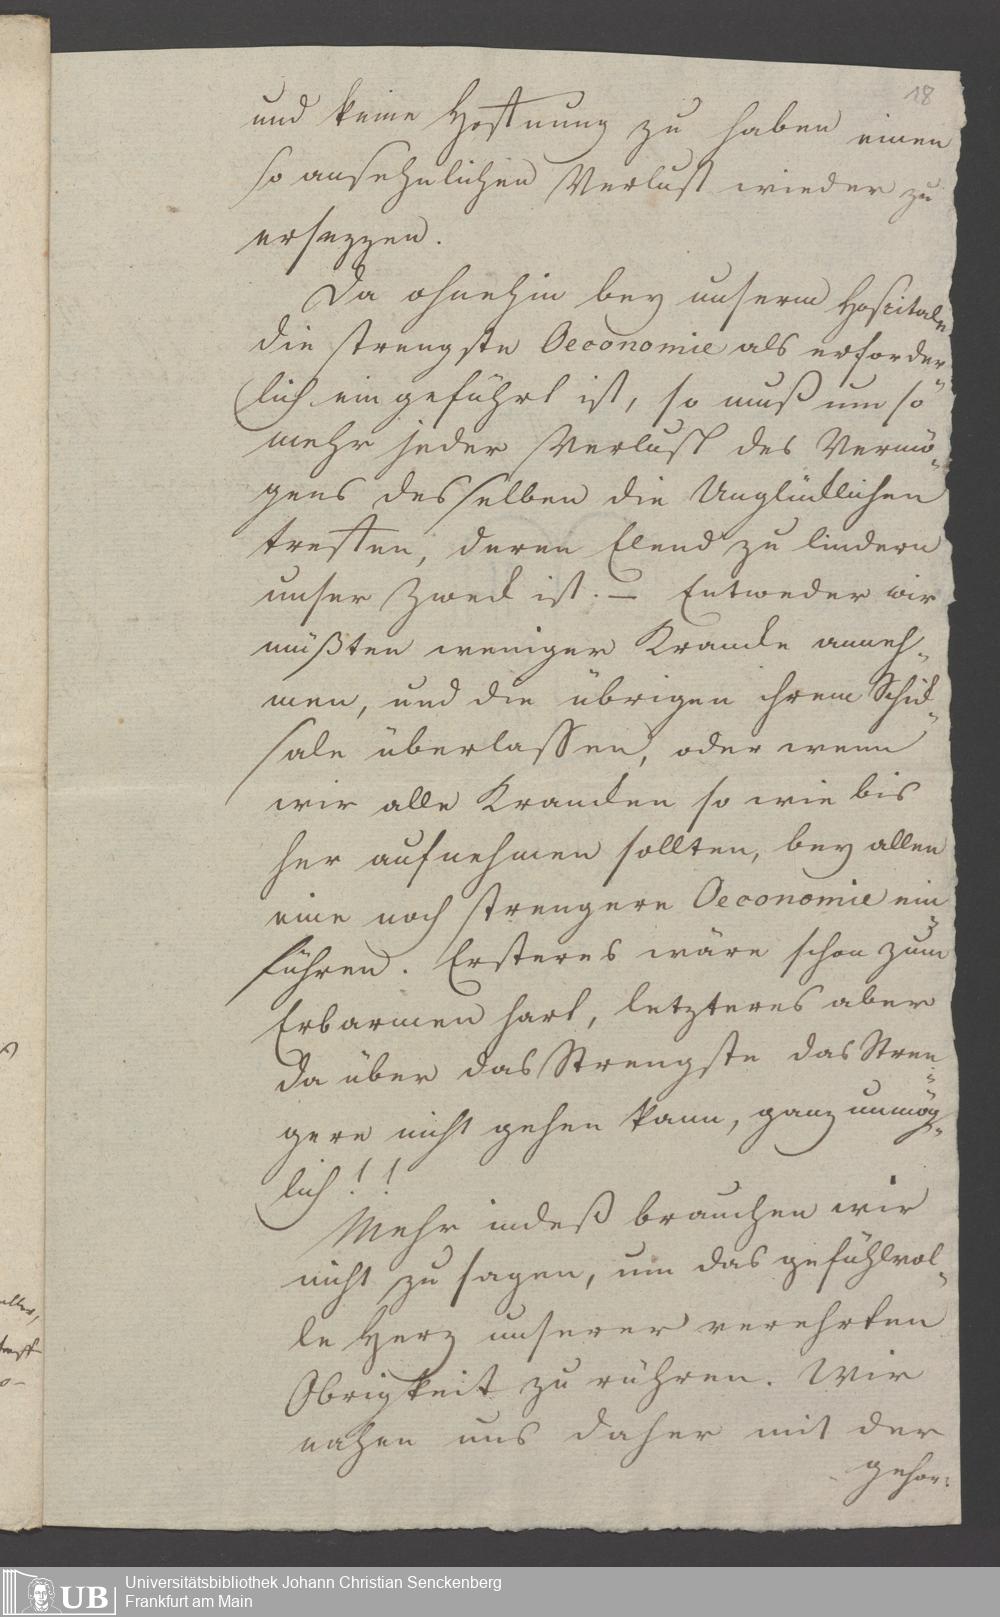 18
und keine Hoffnung zu haben einen
so ansehnlichen Verlust wieder zu
ersezzen.
Da ohnehin bey unserm Hospitale
die strengste Oeconomie als erforder-
lich eingeführt ist, so muß um so
mehr jeder Verlust des Vermö-
gens desselben die Unglücklichen
treffen, deren Elend zu lindern
unser Zweck ist. — Entweder wir
müßten weniger Krancke anneh-
men, und die übrigen ihrem Schick-
sale überlassen, oder wenn
wir alle Krancken so wie bis
her aufnehmen sollten, bey allen
eine noch strengere Oeconomie ein-
führen. Ersteres wäre schon zum
Erbarmen hart, letzteres aber
da über das Strengste das Stren-
gere nicht gehen kann, ganz unmög-
lich!!
Mehr indeß brauchen wir
nicht zu sagen, um das gefühlvol-
le Herz unserer verehrten
Obrigkeit zu rühren. Wir
nahen uns daher mit der
gehor-
UB
Universitätsbibliothek Johann Christian Senckenberg
Frankfurt am Main